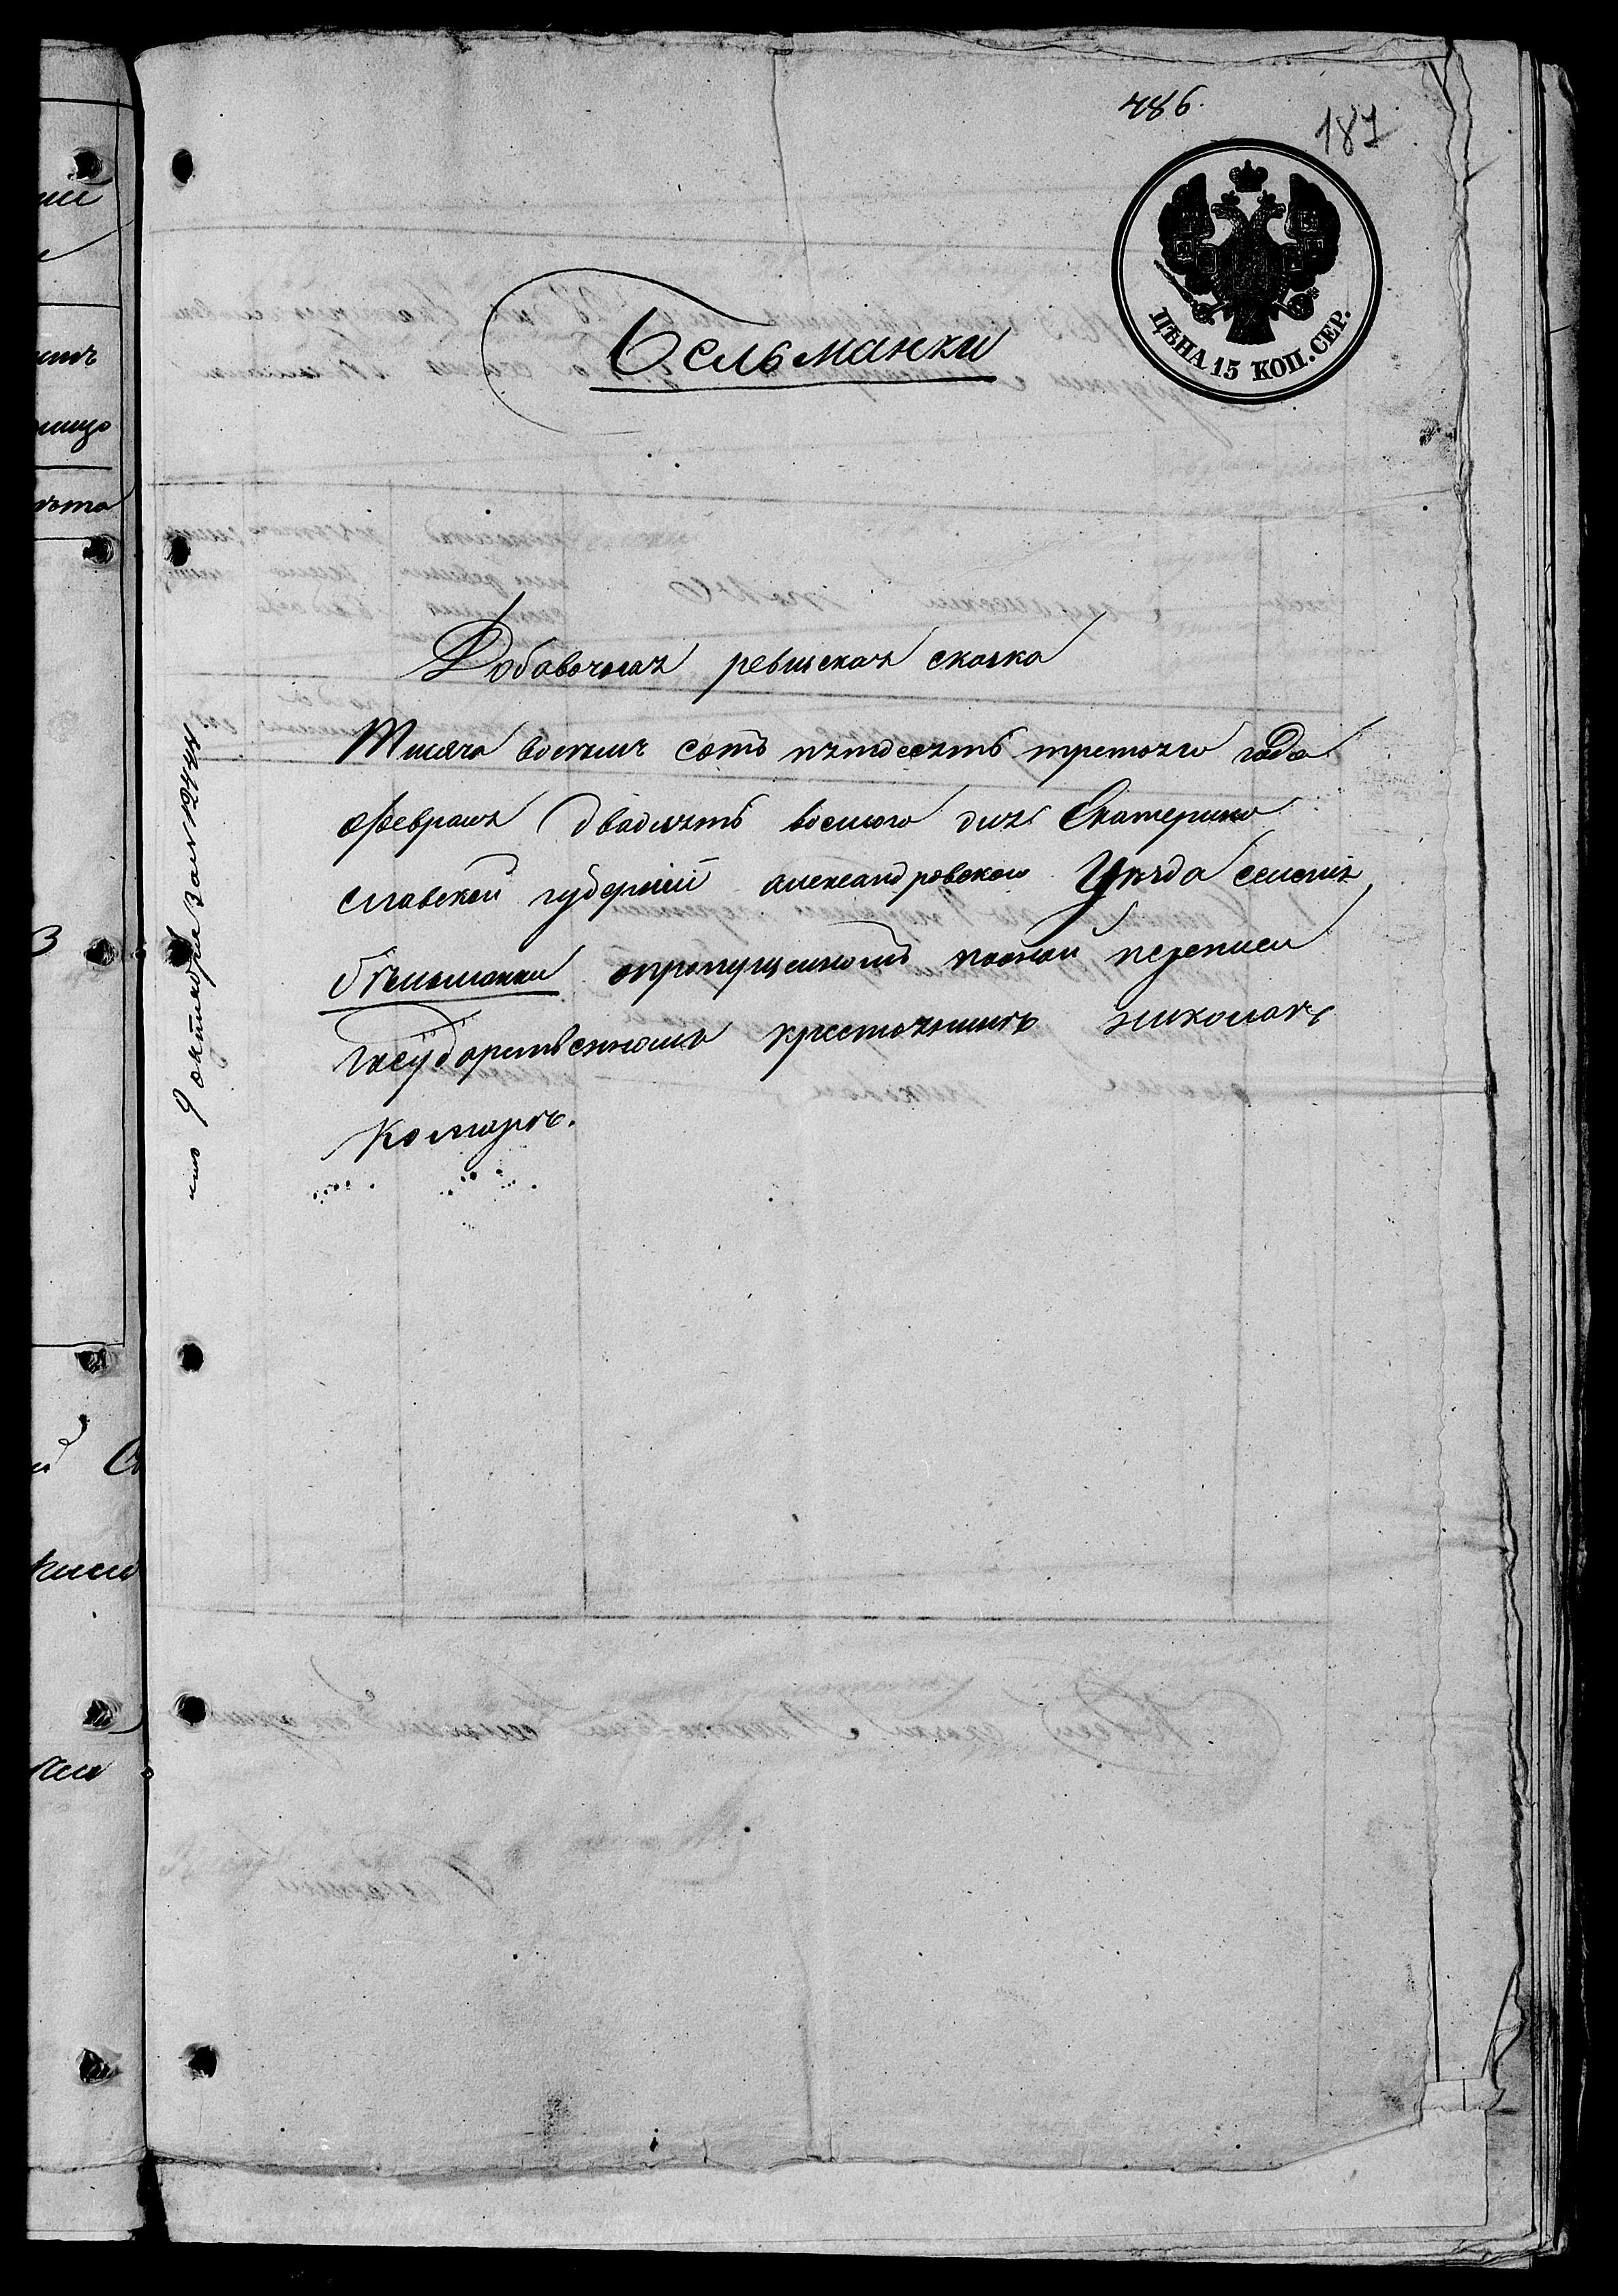 486.
187
ЦѢНА 15 КОП. СЕР.
Бельманки
Добавочная ревиская сказка
Тисяча восемъ сотъ пятдесятъ третяго года
февраля двадцять восмого дня Екатерино
славской губернии александровскаго Уѣзда селения
бѣльманки опропущеномъ поной переписи
государственомъ крестянинѣ николаѣ
Комарѣ.
9 октября За № 12444